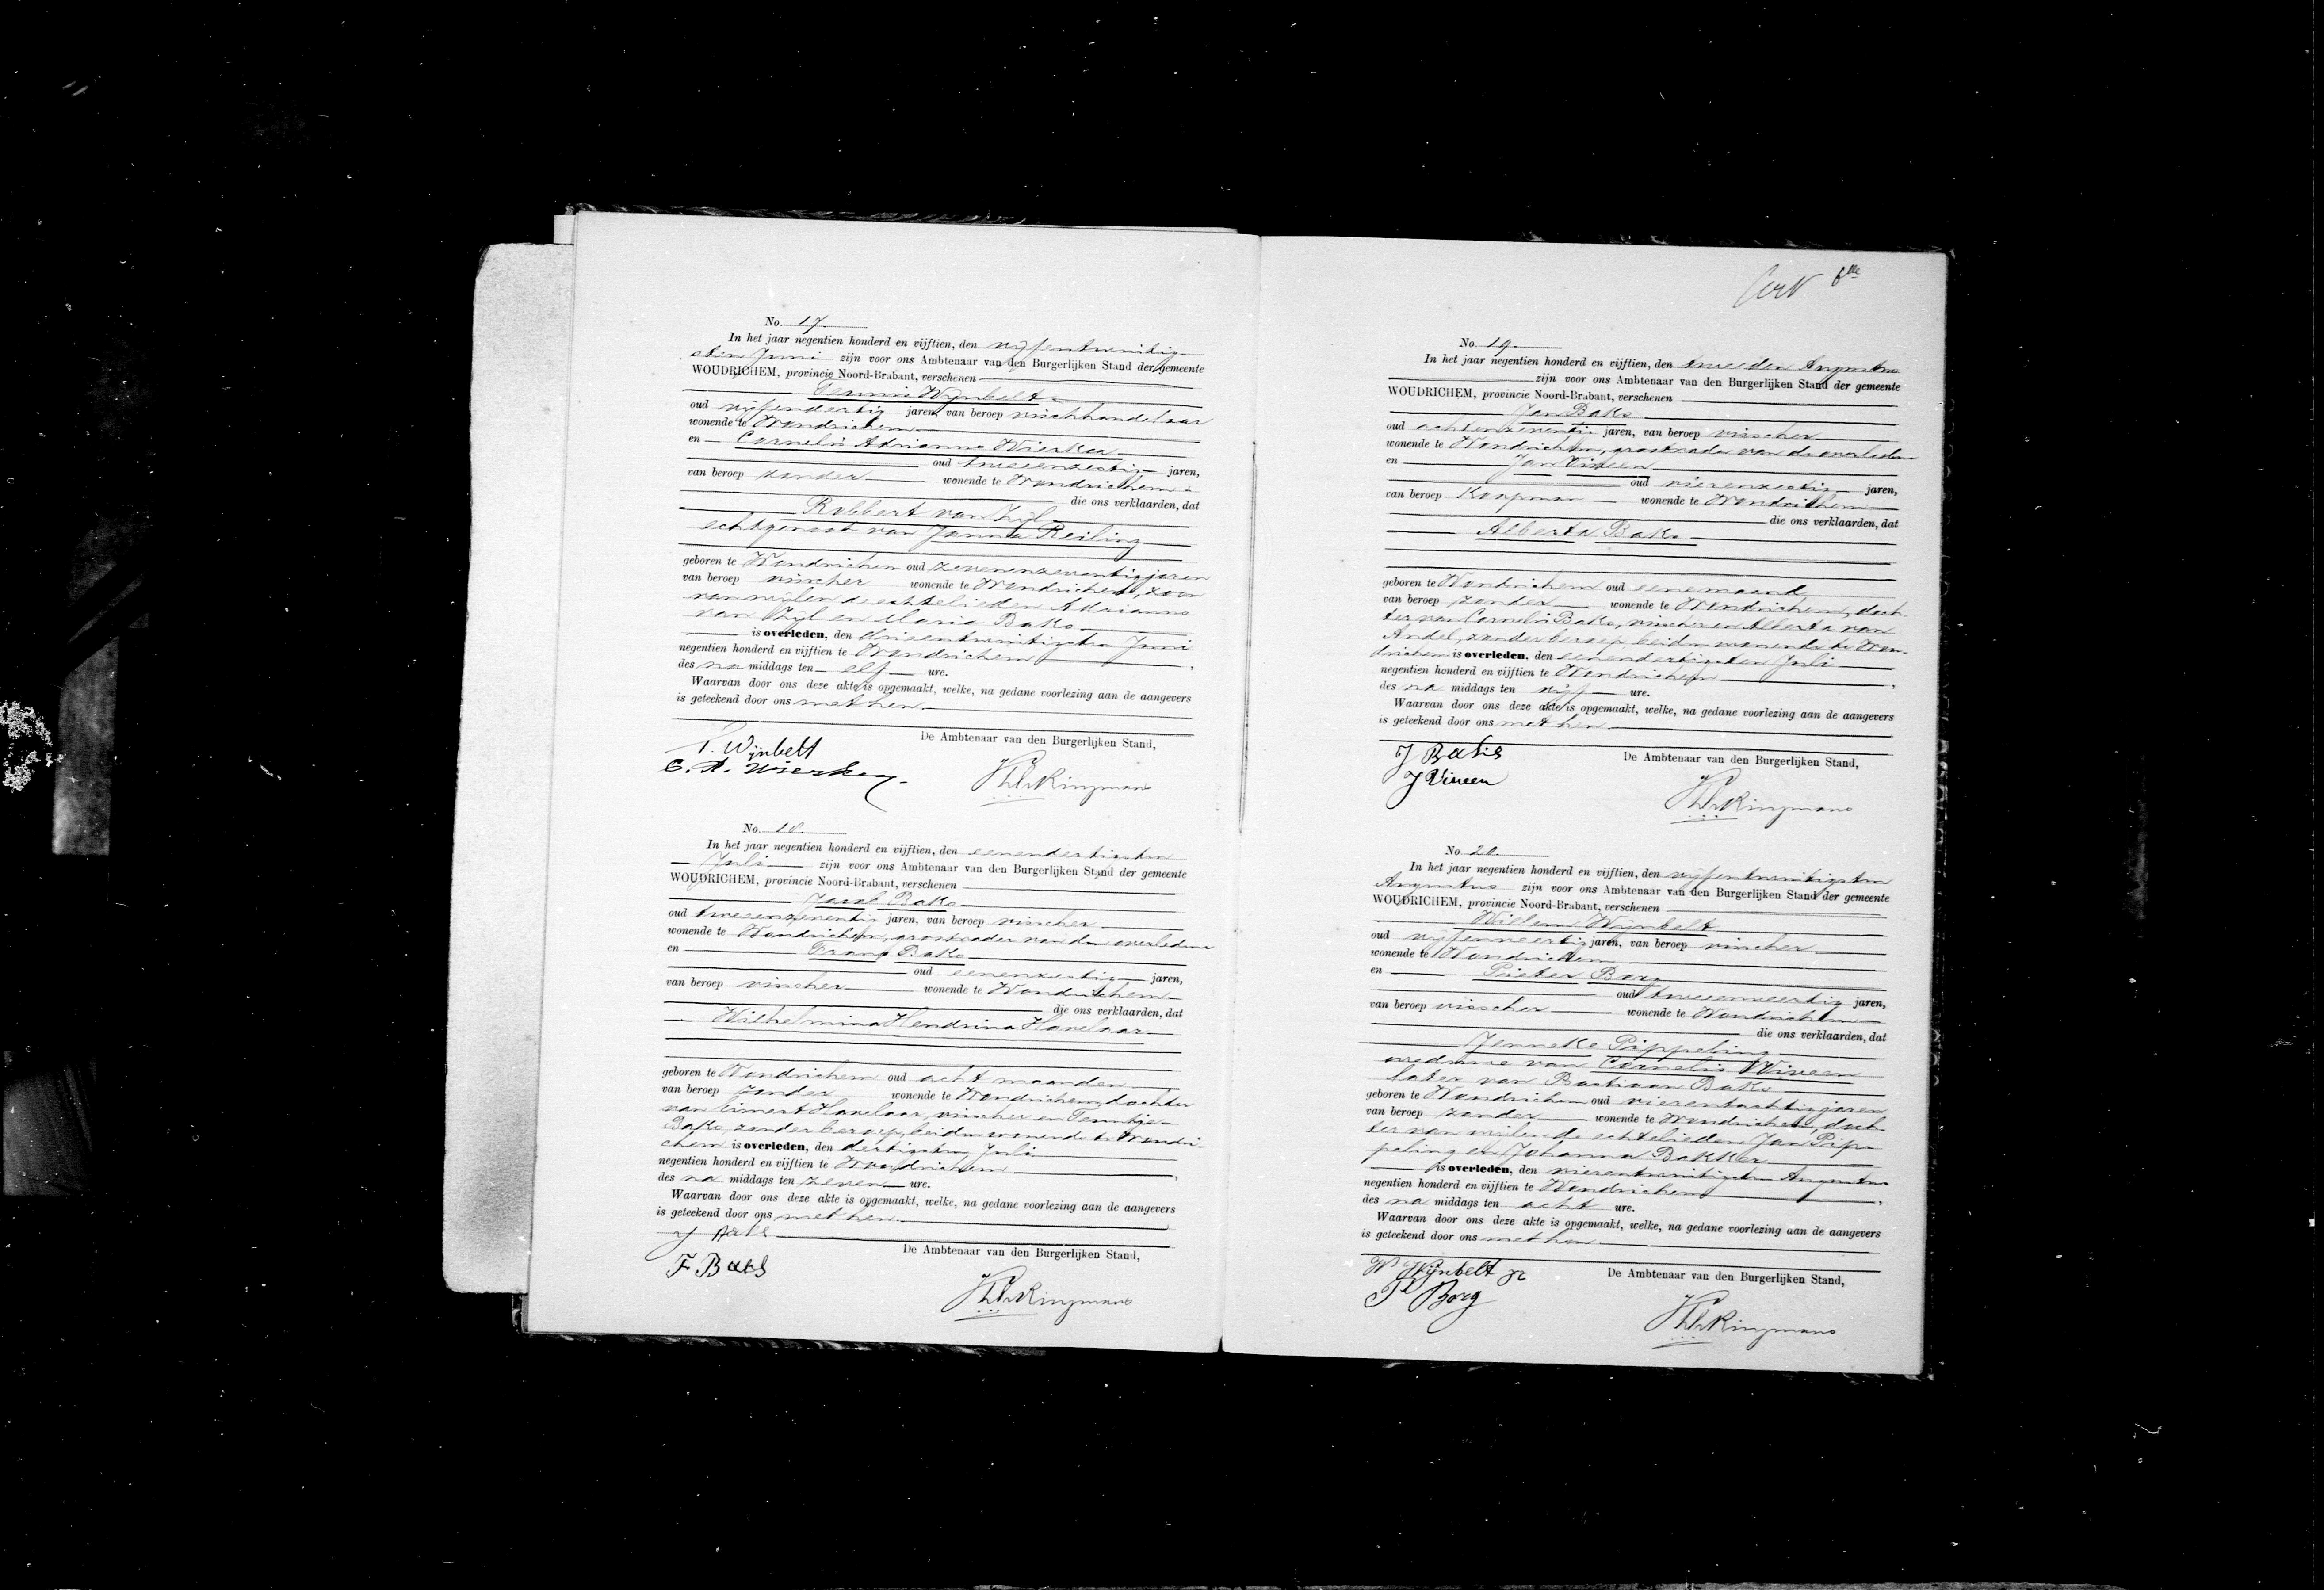 No. 17.
In het jaar negentien honderd en vijftien, den vijfentwintig-
sten Juni zijn voor ons Ambtenaar van den Burgerlijken Stand der gemeente
WOUDRICHEM, provincie Noord-Brabant, verschenen
Teunis Wijnbelt
oud vijfendertig jaren, van beroep vischhandelaar
wonende te Woudrichem
en Cornelis Adrianus
oud tweeenzestig jaren,
van beroep zonder wonende te Woudrichem
die ons verklaarden, dat
Robbert van Zijl
echtgenoot van Janna Reiling
geboren te Woudrichem oud zevenenzeventig jaren
van beroep visscher wonende te Woudrichem, zoon
van wijlen de echtelieden Adrianus
van Zijl en Maria Baks
is overleden, den drieentwintigsten Juni
negentien honderd en vijftien te Woudrichem,
des na middags ten elf ure.
Waarvan door ons deze akte is opgemaakt, welke, na gedane voorlezing aan de aangevers
is geteekend door ons met hen.
De Ambtenaar van den Burgerlijken Stand,
T. Wijnbelt
C. A.
No. 18.
In het jaar negentien honderd en vijftien, den eenendertigsten
Juli zijn voor ons Ambtenaar van den Burgerlijken Stand der gemeente
WOUDRICHEM, provincie Noord-Brabant, verschenen
Jacob Baks
oud tweeenzeventig jaren, van beroep visscher
wonende te Woudrichem, grootvader van de overledene
en Frans Baks
oud eenenzestig jaren,
van beroep visscher wonende te Woudrichem
die ons verklaarden, dat
Wilhelmina Hendrina Havelaar
geboren te Woudrichem oud acht maanden
van beroep zonder wonende te Woudrichem, dochter
van Eimert Havelaar, visscher en Teuntje
Baks, zonder beroep, beiden wonende te Woudri-
chem is overleden, den dertigsten Juli
negentien honderd en vijftien te Woudrichem,
des na middags ten zeven ure.
Waarvan door ons deze akte is opgemaakt, welke, na gedane voorlezing aan de aangevers
is geteekend door ons met hen.
J Baks
De Ambtenaar van den Burgerlijken Stand,
F. Baks
No. 19.
In het jaar negentien honderd en vijftien, den tweeden Augustus
zijn voor ons Ambtenaar van den Burgerlijken Stand der gemeente
WOUDRICHEM, provincie Noord-Brabant, verschenen
Jan Baks
oud achtenzeventig jaren, van beroep visscher
wonende te Woudrichem, grootvader van de overledene
en Jan Viveen
oud vierenzestig jaren,
van beroep Koopman wonende te Woudrichem
die ons verklaarden, dat
Alberta Baks
geboren te Woudrichem oud eene maand
van beroep zonder wonende te Woudrichem, doch-
ter van Cornelis Baks, visscher en Alberta van
Andel, zonder beroep, beiden wonende te Wou-
drichem is overleden, den eenendertigsten Juli
negentien honderd en vijftien te Woudrichem,
des na middags ten vijf ure.
Waarvan door ons deze akte is opgemaakt, welke, na gedane voorlezing aan de aangevers
is geteekend door ons met hen.
De Ambtenaar van den Burgerlijken Stand,
J Baks
J Viveen
No. 20.
In het jaar negentien honderd en vijftien, den vijfentwintigsten
Augustus zijn voor ons Ambtenaar van den Burgerlijken Stand der gemeente
WOUDRICHEM, provincie Noord-Brabant, verschenen
Willem Wijnbelt
oud vijfenveertig jaren, van beroep visscher
wonende te Woudrichem
en Pieter Borg
oud tweeenveertig jaren,
van beroep visscher wonende te Woudrichem
die ons verklaarden, dat
Jenneke Pippeling
weduwe van Cornelis Viveen
later van Bastiaan Baks
geboren te Woudrichem oud vierentachtig jaren
van beroep zonder wonende te Woudrichem, doch-
ter van wijlen de echtelieden Jan Pip-
peling en Johanna Bakker
is overleden, den vierentwintigsten Augustus
negentien honderd en vijftien te Woudrichem,
des na middags ten acht ure.
Waarvan door ons deze akte is opgemaakt, welke, na gedane voorlezing aan de aangevers
is geteekend door ons met hen.
W Wijnbelt
De Ambtenaar van den Burgerlijken Stand,
P Borg